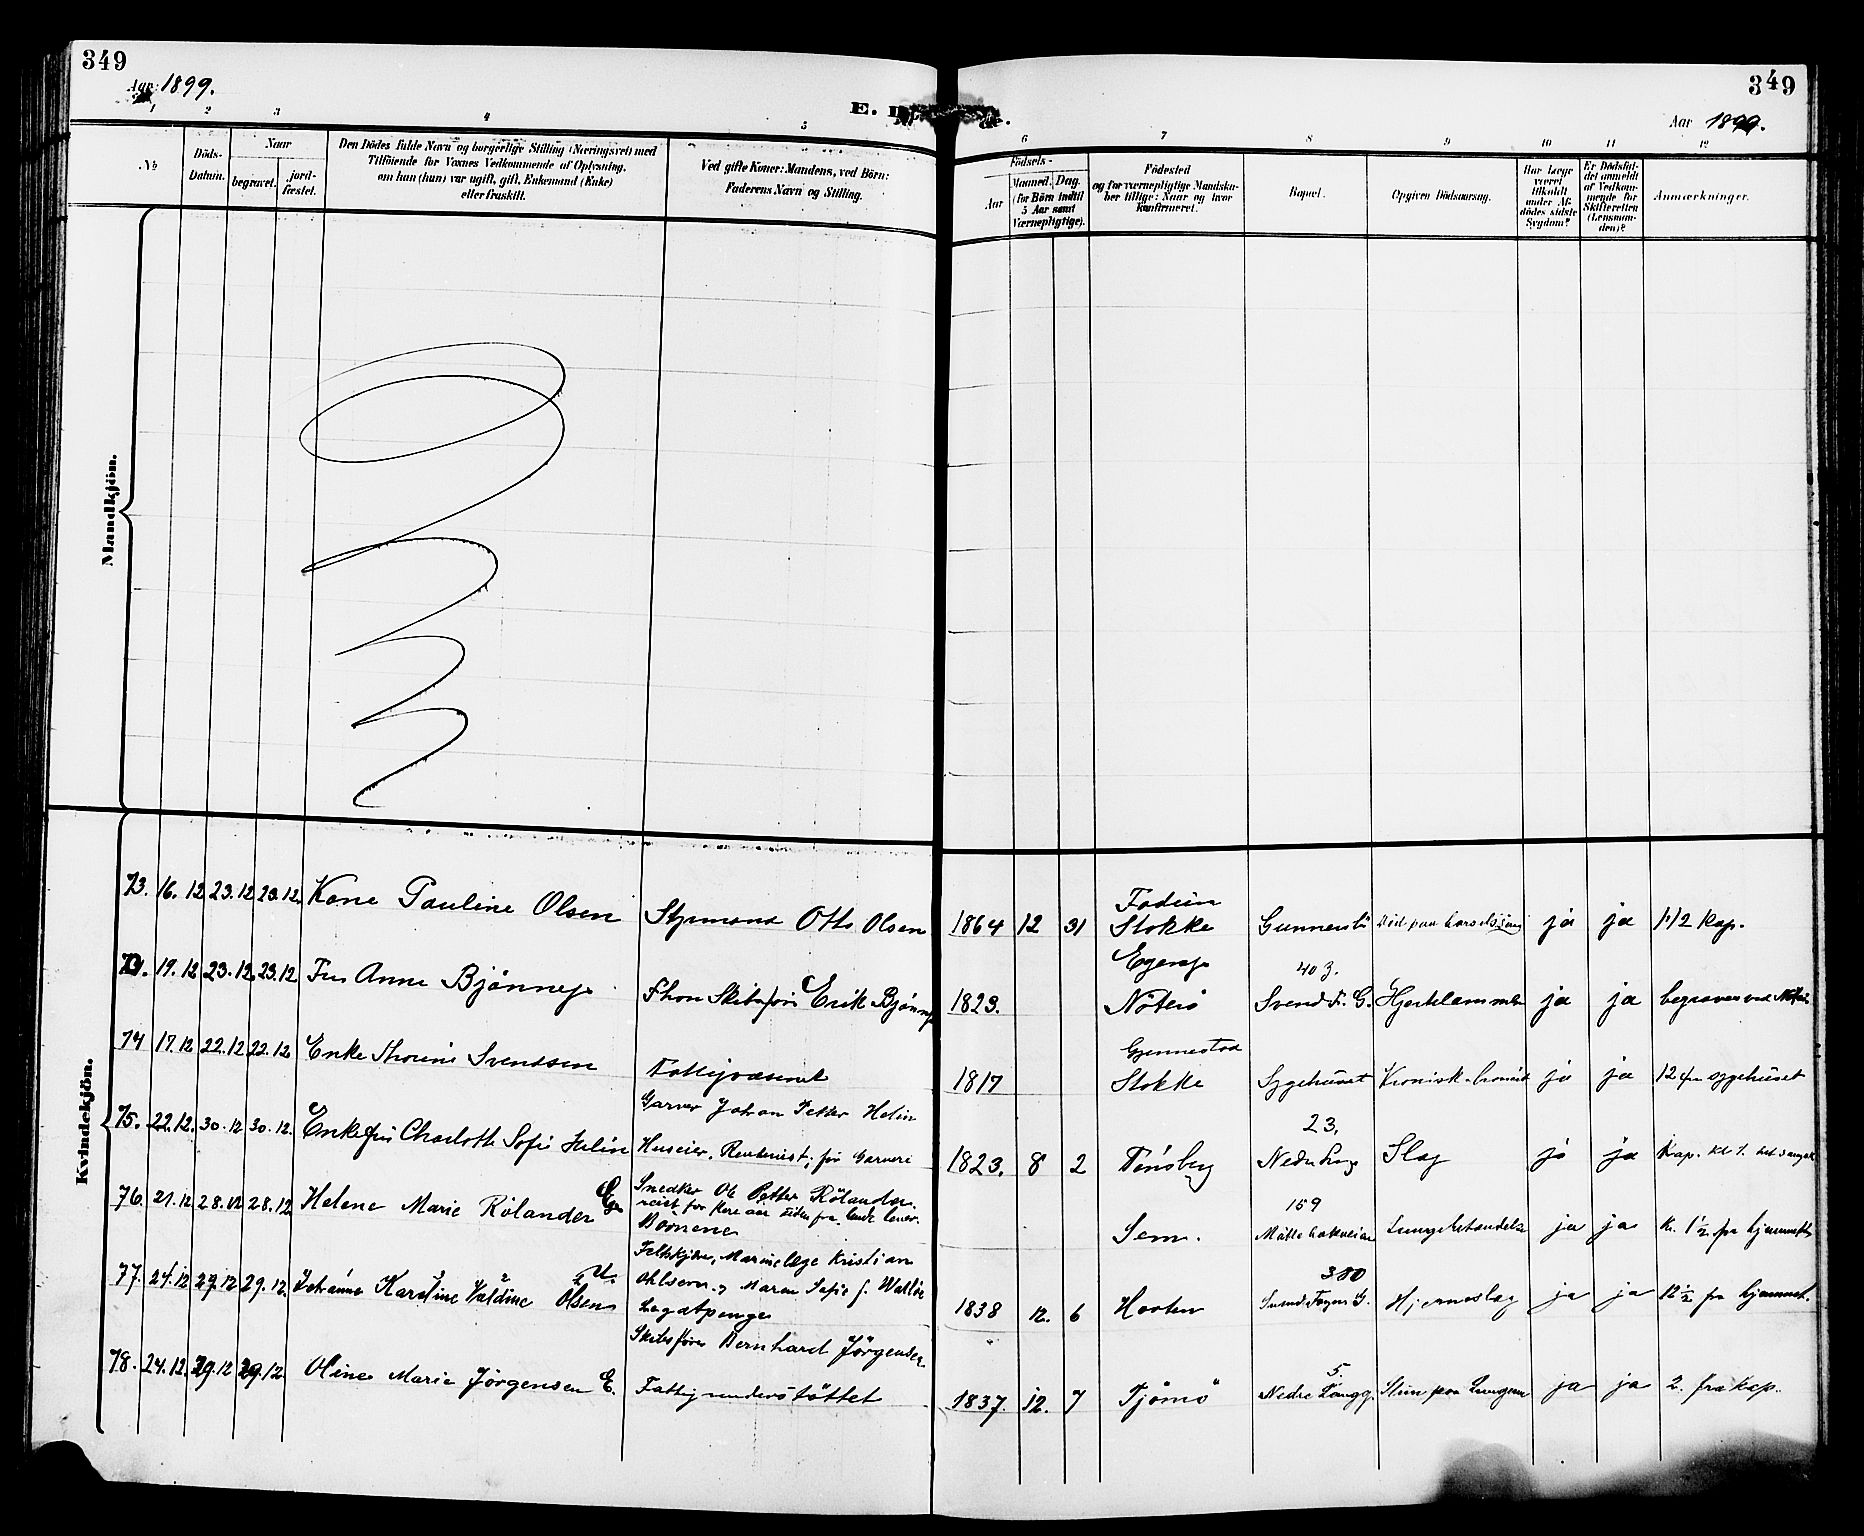 349
Aar 1899.
349
Aar 1899.
1 2 3 4 5
6 7 8 9 10 11 12
No
Döds-
Datum.
Naar
begravet.
jord-
fæstet.
Den Dödes fulde Navn og borgerlige Stilling (Næringsvei) med
Tilföiende for Voxnes Vedkommende af Oplysning,
om han (hun) var ugift, gift, Enkemand (Enke)
eller fraskilt.
Ved gifte Koner: Mandens, ved Börn:
Faderens Navn og Stilling.
Födsels-
Aar
Maaned. Dag.
(for Börn indtil
5 Aar samt
Værnepligtige).
Födested
og for værnepligtige Mandska-
ber tillige: Naar og hvor
konfirmeret.
Bopæl.
Opgiven Dödsaarsag.
Har Læge
været
tilkaldt
under Af-
dödes sidste
Sygdom?
Er Dödsfal-
det anmeldt
af Vedkom-
mende for
Skifteretten
(Lensman-
den)?
Anmærkninger.
Mandkjön.
Kvindekjön.
73. 16. 12 23. 12 23. 12. Kone Pauline Olsen
Styrmand Otto Olsen
1864 12 31
Stokke
ja ja 1 1/2 Kap.
19. 12 23. 12. 23. 12 Fru Anne Bjönnes
Erik Bjönnes
1823.
Nöterö
403.
Svend F. G. ja ja
74 17. 12 22. 12 22. 12 Enke Thorine Svendsen
Fattigvæsenet
1817
Gjennestad
Stokke
Sygehuset Kronisk ja ja 12 fra sygehuset
75. 22. 12. 30. 12 30. 12. Enkefru Charlotte Sofie Helin
Garver Johan Petter Helin
Huseier, Rentenist, för Garveri
1823. 8 2 Tönsberg
23.
Slag ja ja
76. 21. 12 28. 12 28. 12 Helene Marie Rölander E
Snedker Ole Petter Rölander
reist for flere aar siden fra lande lever.
Börnene
Sem.
159
Lungebetændelse ja ja Kl. 1 1/2 fra hjemmet
77. 24. 12 29. 12 29. 12. Johanne Karoline Valdine Olsen U.
Feltskjær, Marinelæge Kristian
Ohlsen og Maren Sofie f. Wallöe
Legatpenge
1838 12. 6 Horten
380
Svend Foyns G. Hjerneslag ja ja 12 1/2 fra hjemmet.
78. 24. 12. 29. 12 29. 12. Oline Marie Jörgensen E.
Skibsförer Bernhard Jörgensen
Fattigunderstöttet
1837. 12. 7 Tjömö
5.
Nedre Langg. Slim paa Lungerne ja ja 2. fra Kap.